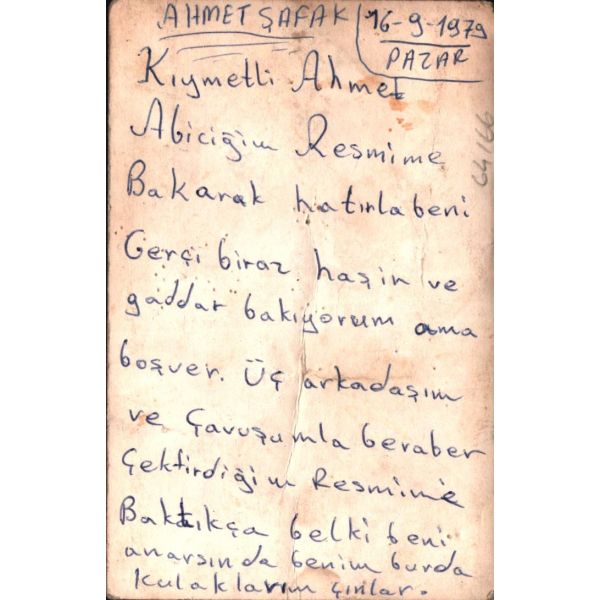 AHMET ŞAFAK
16-9-1979
PAZAR
Kıymetli Ahmet
Abiciğim Resmime
Bakarak hatırla beni
Gerçi biraz haşin ve
gaddar bakıyorum ama
boşver. Üç arkadaşım
ve Çavuşumla beraber
Çektirdiğim Resmime
Baktıkça belki beni
anarsında benim burda
kulaklarım çınlar.
64/66